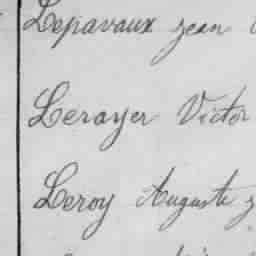 Lepavaux Jean
Lerayer Victor
Leroy Auguste